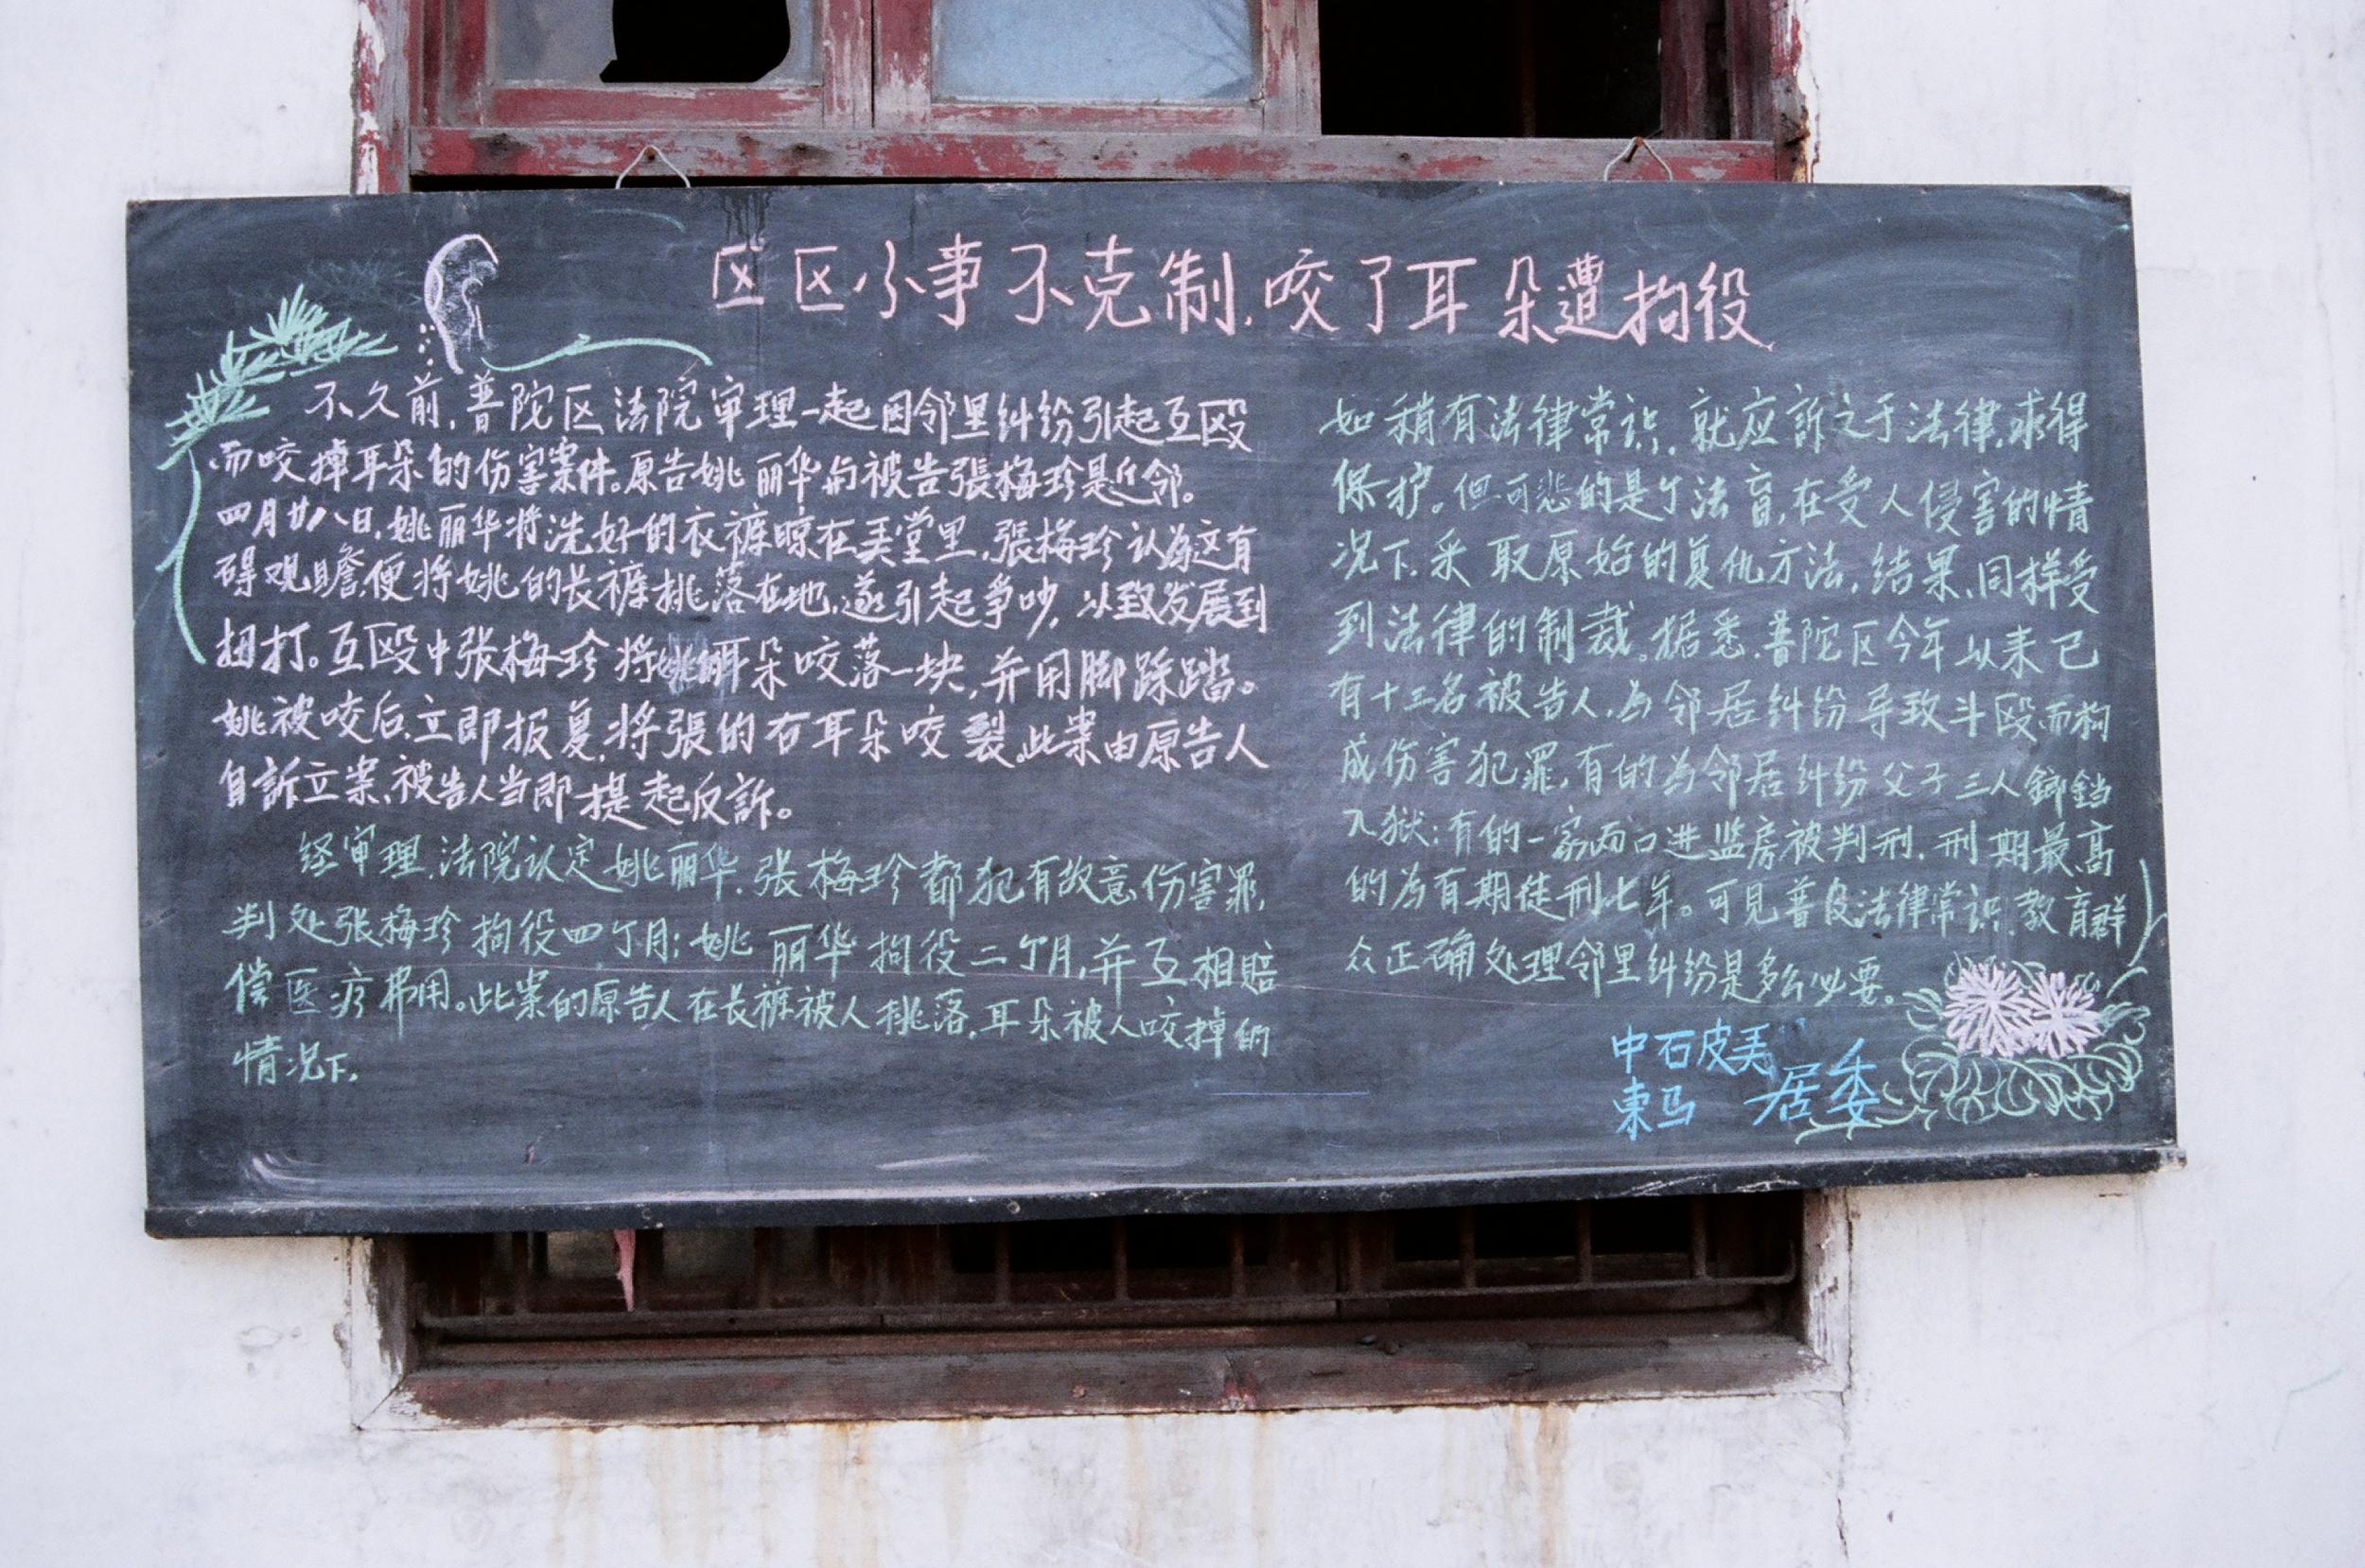 区区小事不克制,咬了耳朵遭拘役
不久前,普陀区法院审理一起因邻里纠纷引起互殴
而咬掉耳朵的伤害案件。原告姚丽华与被告張梅珍是近邻。
四月廿八日,姚丽华将洗好的衣裤晾在弄堂里,張梅珍认為这有
碍观瞻,便将姚的长裤挑落在地,遂引起争吵,以致发展到
扭打。互殴中张梅珍将姚的耳朵咬落一块,并用脚踩踏。
姚被咬后,立即报复,将張的右耳朵咬裂。此案由原告人
自訴立案,被告人当即提起反訴。
经审理,法院认定姚丽华、张梅珍都犯有故意伤害罪,
判处张梅珍拘役四个月;姚丽华拘役二个月,并互相賠
偿医疗费用。此案的原告人在长裤被人挑落,耳朵被人咬掉的
情况下,
如稍有法律常识,就应訴之于法律,求得
保护。但可悲的是个法盲,在受人侵害的情
况下,采取原始的复仇方法,结果,同样受
到法律的制裁。据悉,普陀区今年以来已
有十三名被告人,为邻居纠纷导致斗殴而构
成伤害犯罪,有的为邻居纠纷父子三人鎯铛
入狱;有的一家两口进监房被判刑,刑期最高
的为有期徒刑七年。可见普及法律常识,教育群
众正确处理邻里纠纷是多么必要。
中石皮弄
東马 居委